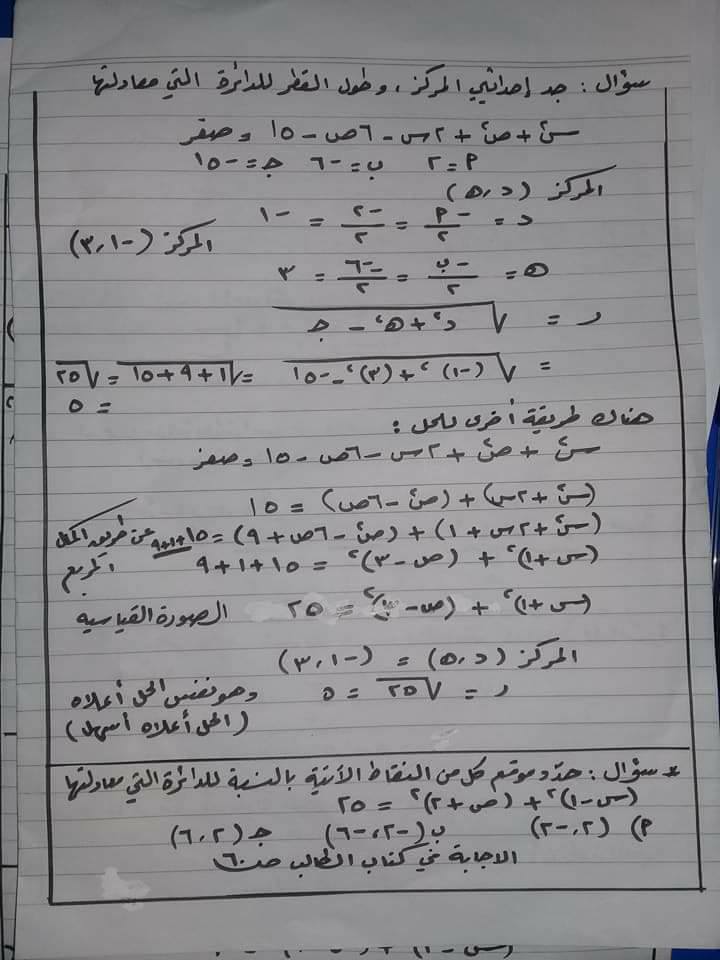 سؤال : جد إحداثيي المركز ، وطول القطر للدائرة التي معادلتها
س٢ + ص٢ + ٢س - ٦ص - ١٥ = صفر
م = ٢ ب = -٦ جـ = -١٥
المركز (د،هـ)
د = -م/٢ = -٢/٢ = -١
المركز (-١،٣)
هـ = -ب/٢ = --٦/٢ = ٣
ر = √(د٢ + هـ٢ - جـ)
= √((-١)٢ + (٣)٢ - -١٥) = √(١+٩+١٥) = √٢٥
= ٥
هناك طريقة أخرى للحل :
س٢ + ص٢ + ٢س - ٦ص - ١٥ = صفر
(س٢ + ٢س) + (ص٢ - ٦ص) = ١٥
(س٢ + ٢س + ١) + (ص٢ - ٦ص + ٩) = ١٥+١+٩ عن طريق اكمال المربع
(س+١)٢ + (ص-٣)٢ = ١٥+١+٩
(س+١)٢ + (ص-٣)٢ = ٢٥ الصورة القياسيه
المركز (د،هـ) = (-١،٣)
ر = √٢٥ = ٥ وهو نفس الحل أعلاه
(الحل أعلاه أسهل)
* سؤال : حدد موقع كل من النقاط الآتية بالنسبة للدائرة التي معادلتها
(س-١)٢ + (ص+٢)٢ = ٢٥
م) (٢،-٢) ب(-٢،-٦) جـ(٢،٦)
الاجابة في كتاب الطالب صـ٦٠